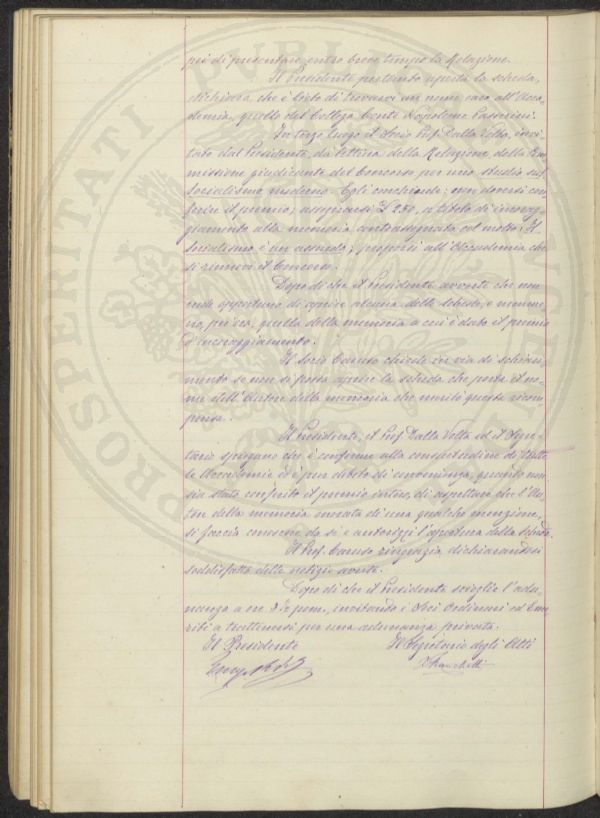 più di presentare entro breve tempo la Relazione.
Il Presidente pertanto aperta la scheda,
dichiara che è lieto di trovarvi un nome caro all'Acca-
demia, quello del Collega Conte Napoleone Passerini.
In terzo luogo il Socio Prof. Dalla Volta, invi-
tato dal Presidente, dà lettura della Relazione della Com-
missione giudicante del Concorso per uno studio sul
Socialismo moderno. Egli conchiude: non doversi con-
ferire il premio; assegnarsi £ 250, a titolo di incorag-
giamento alla memoria contrassegnata col motto: Il
socialismo è un assurdo; proporsi all'Accademia che
si rinnovi il Concorso.
Dopo di che il Presidente avverte che non
crede opportuno di aprire alcuna delle schede, e nemme-
no, per ora, quella della memoria a cui è dato il premio
d'incoraggiamento.
Il socio Caruso chiede in via di schiari-
mento se non si possa aprire la scheda che porta il no-
me dell'Autore della memoria che meritò questa ricom-
pensa.
Il Presidente, il Prof. Dalla Volta ed il Segre-
tario spiegano che è conforme alla consuetudine di tutte
le Accademie ed è pur debito di convenienza, quando non
sia stato conferito il premio intero, di aspettare che l'Au-
tore della memoria onorata di una qualche menzione,
si faccia conoscere da sé e autorizzi l'apertura della scheda.
Il Prof. Caruso ringrazia dichiarandosi
soddisfatto delle notizie avute.
Dopo di che il Presidente scioglie l'adu-
nanza a ore 3 pom., invitando i Soci Ordinari ed Eme-
riti a trattenersi per una adunanza privata.
Il Presidente
Il Segretario degli Atti
PROSPERITATI PUBLICAE AUGENDAE